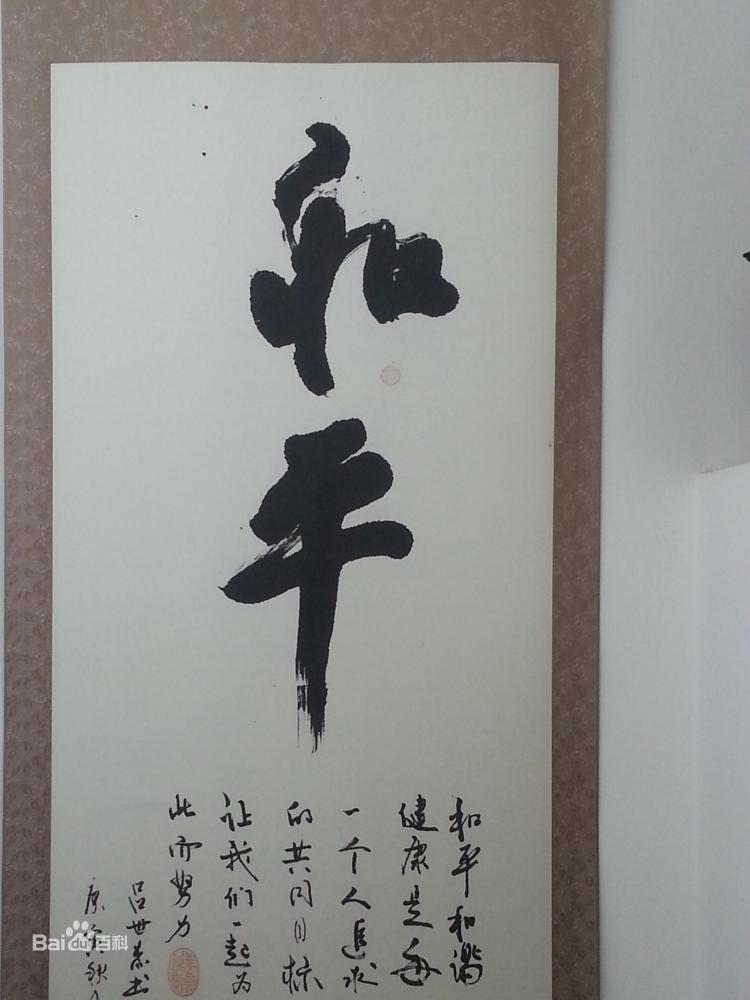 和平
和平和谐
健康是每
一个人追求
的共同目标
让我们一起为
此而努力
吕世
庚寅秋
Bai百科